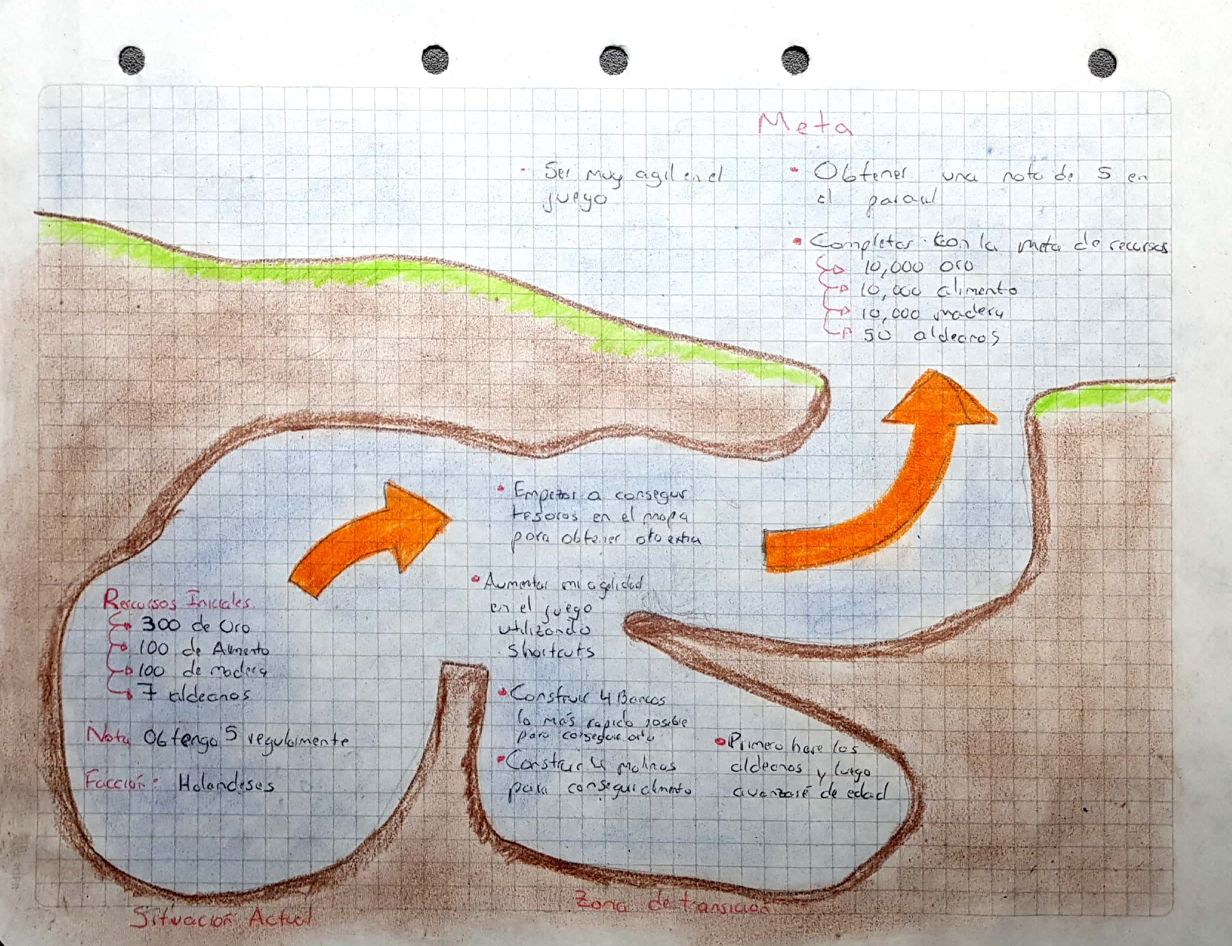 Meta
- Ser muy agil en el
juego
- Obtener una nota de 5 en
el parcial
• Completar con la meta de recursos
10,000 oro
10,000 alimento
10,000 madera
50 aldeanos
• Empezar a conseguir
tesoros en el mapa
para obtener oro extra
• Aumentar mi agilidad
en el juego
utilizando
shortcuts
• Construir 4 Bancos
lo más rapido posible
para conseguir oro
• Construir 4 molinos
para conseguir alimento
• Primero hare los
aldeanos y luego
avanzaré de edad
Recursos Iniciales
300 de Oro
100 de Alimento
100 de madera
7 aldeanos
Nota Obtengo 5 regularmente
Facción: Holandeses
Situación Actual
Zona de transición